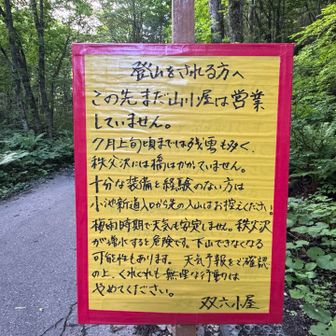 登山をされる方へ
この先まだ山小屋は営業
していません。
7月上旬頃までは残雪も多く、
秩父沢には橋はかかていません。
十分な装備と経験のない方は
小池新道入口から先の入山はお控えください。
梅雨時期で天気も安定しません。秩父沢
が増水すると危険です。下山できなくなる
可能性もあります。天気予報をご確認
の上、くれぐれも無理な行動は
やめてください。
双六小屋